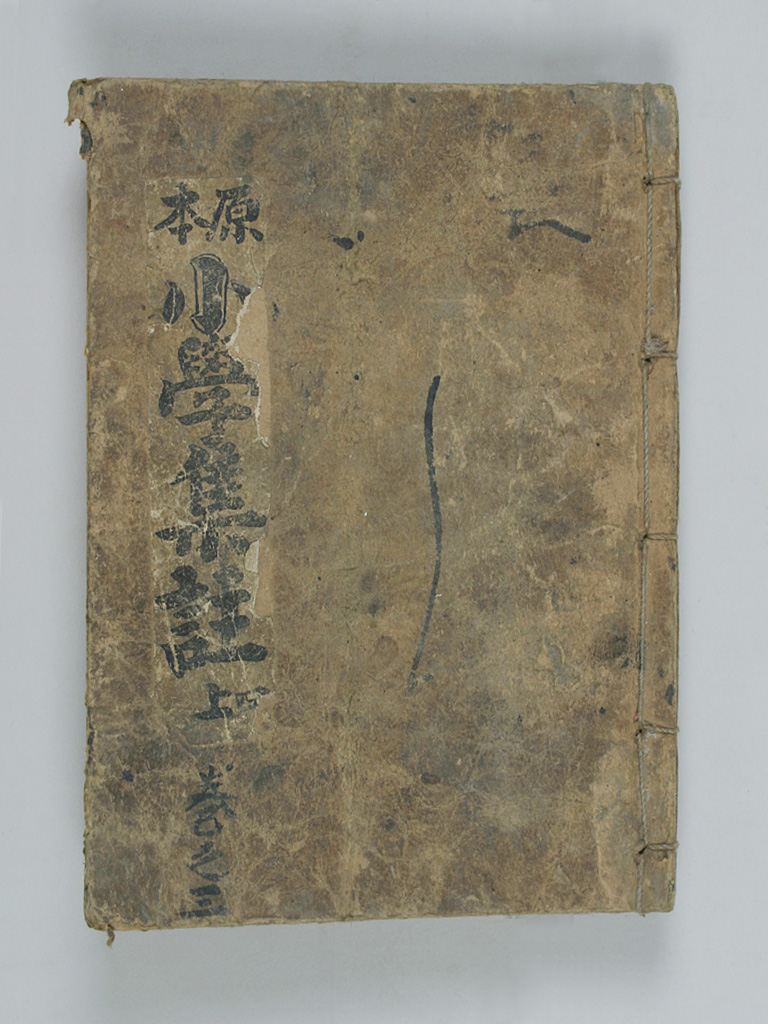 原本
小學集註 上
卷之三